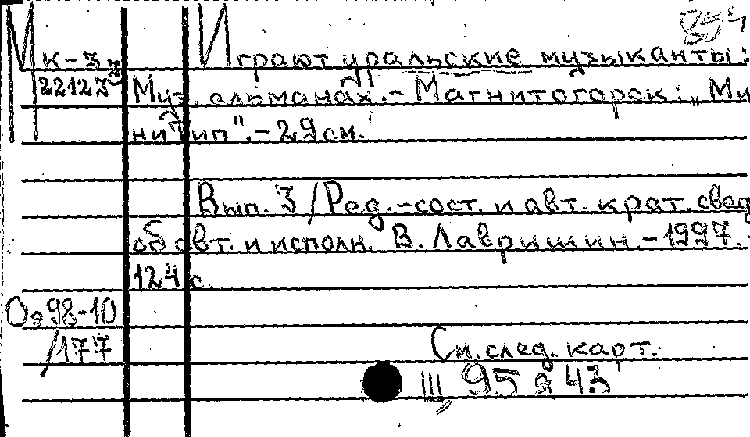 М к-3
22123
Играют уральские музыканты:
Муз. альманах. - Магнитогорск: „Ми
ниТип". - 29 см.
Вып. 3 / Ред.-сост. и авт. крат. свед
об авт. и исполн. В. Лавришин. - 1997. -
124 с.
Оэ98-10
/177
См. след. карт.
Ш 95 д 43